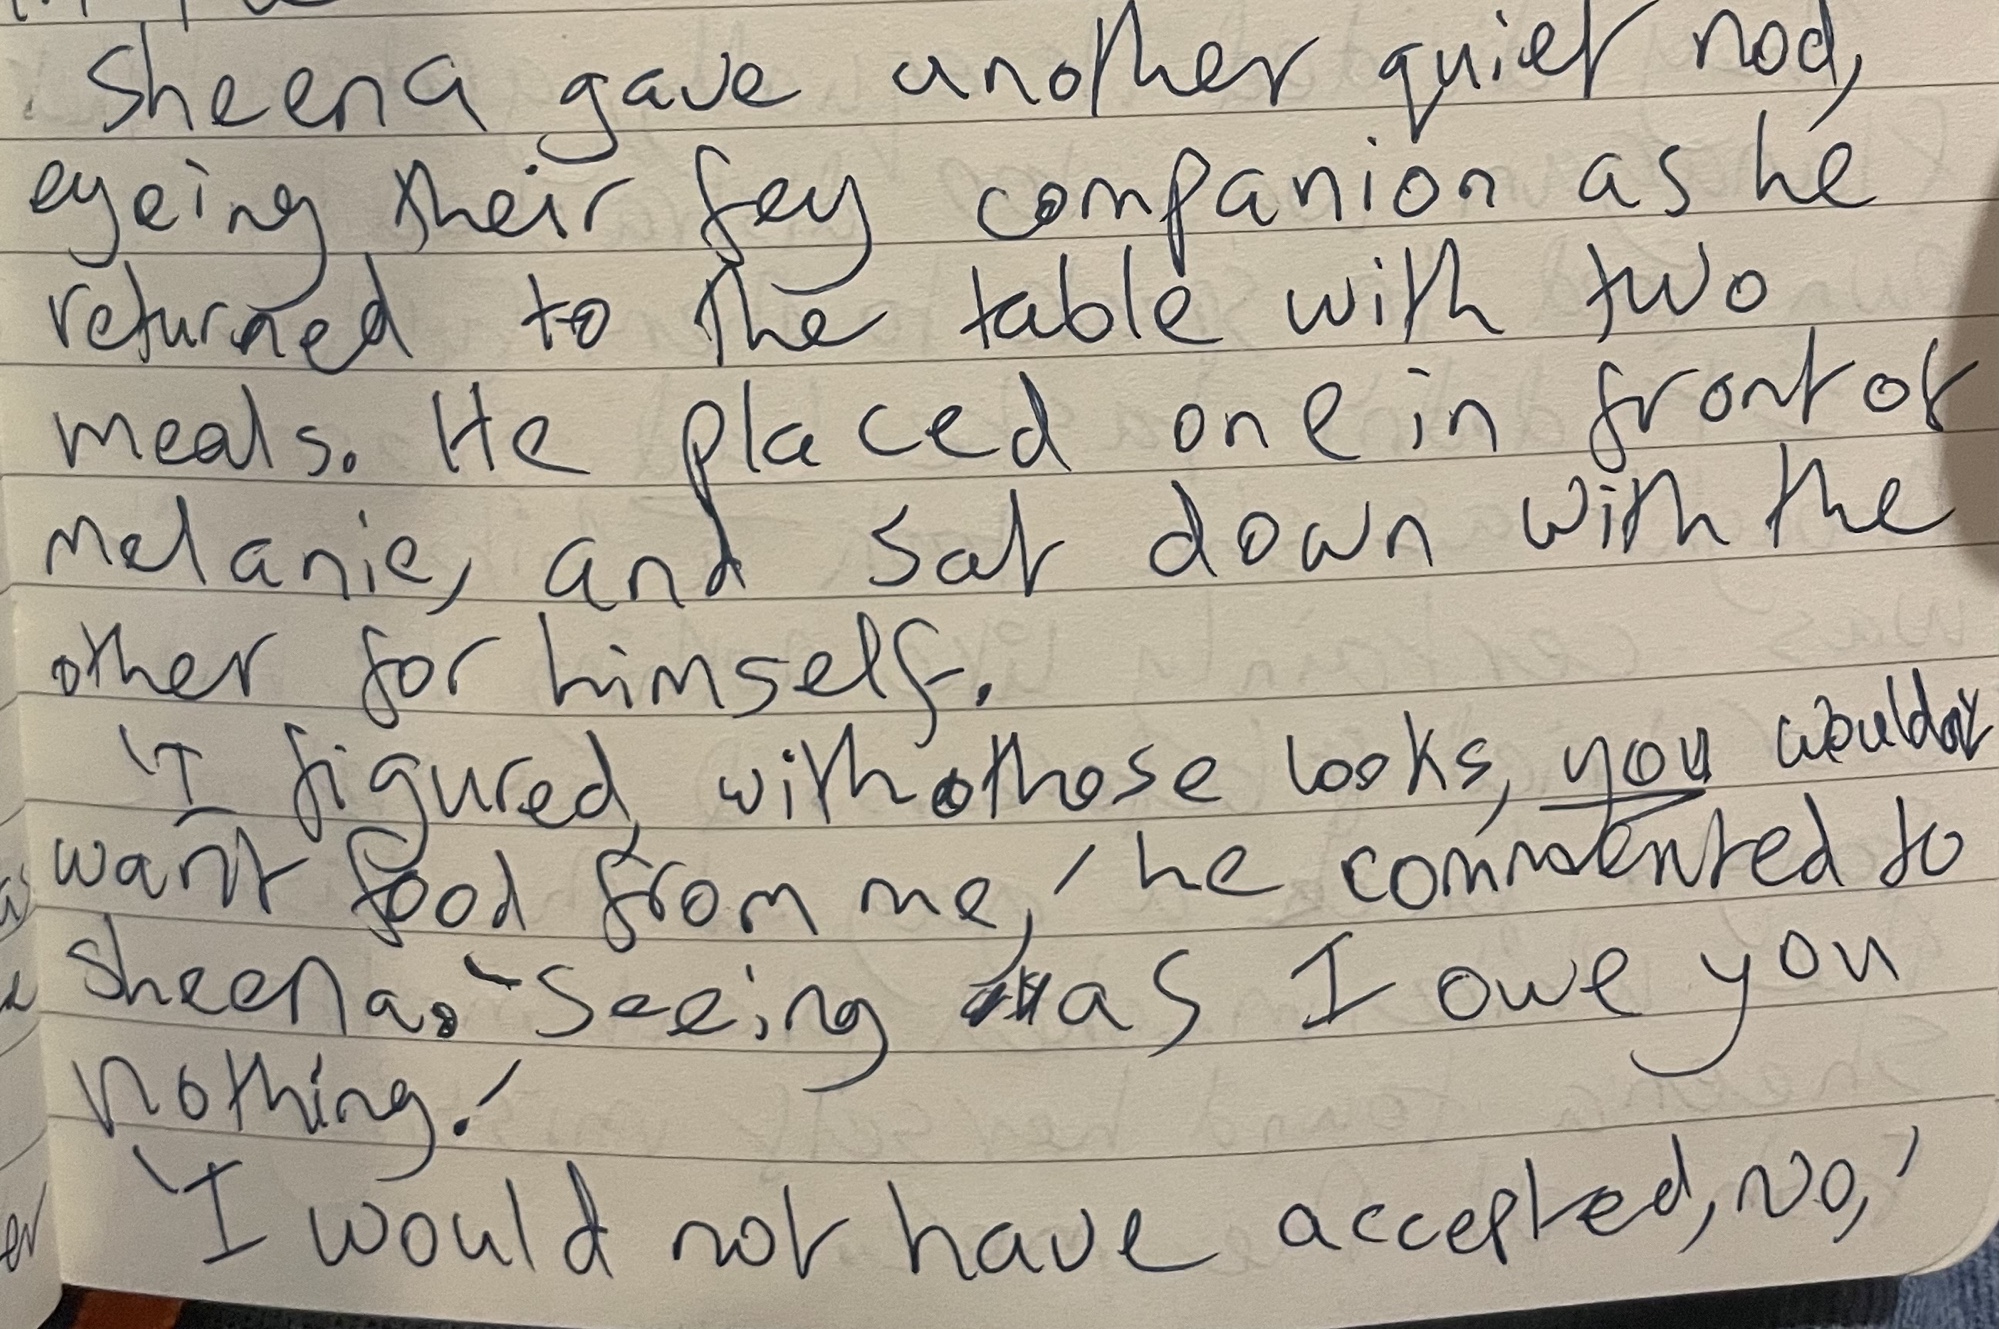 Sheena gave another quiet nod,
eyeing their fey companion as he
returned to the table with two
meals. He placed one in front of
Melanie, and sat down with the
other for himself.
'I figured, with those looks, you wouldn't
want food from me,' he commented to
Sheena. 'Seeing as I owe you
nothing.'
'I would not have accepted, no,'